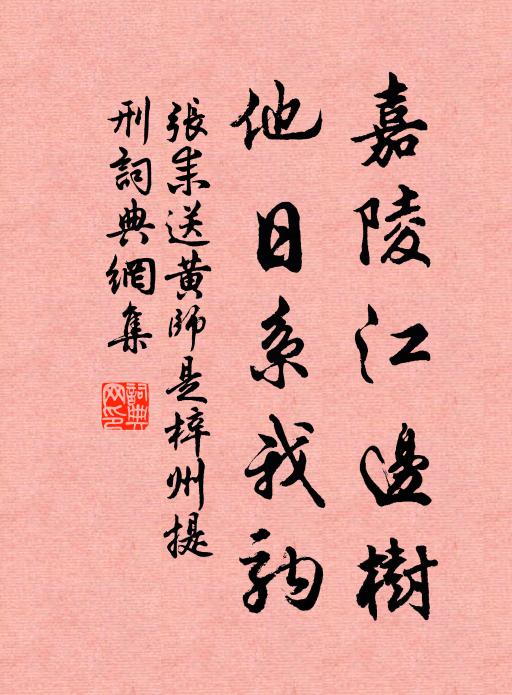 嘉陵江邊樹
他日系我駒
張耒送黃師是梓州提
刑詞典網集
詞典
网印